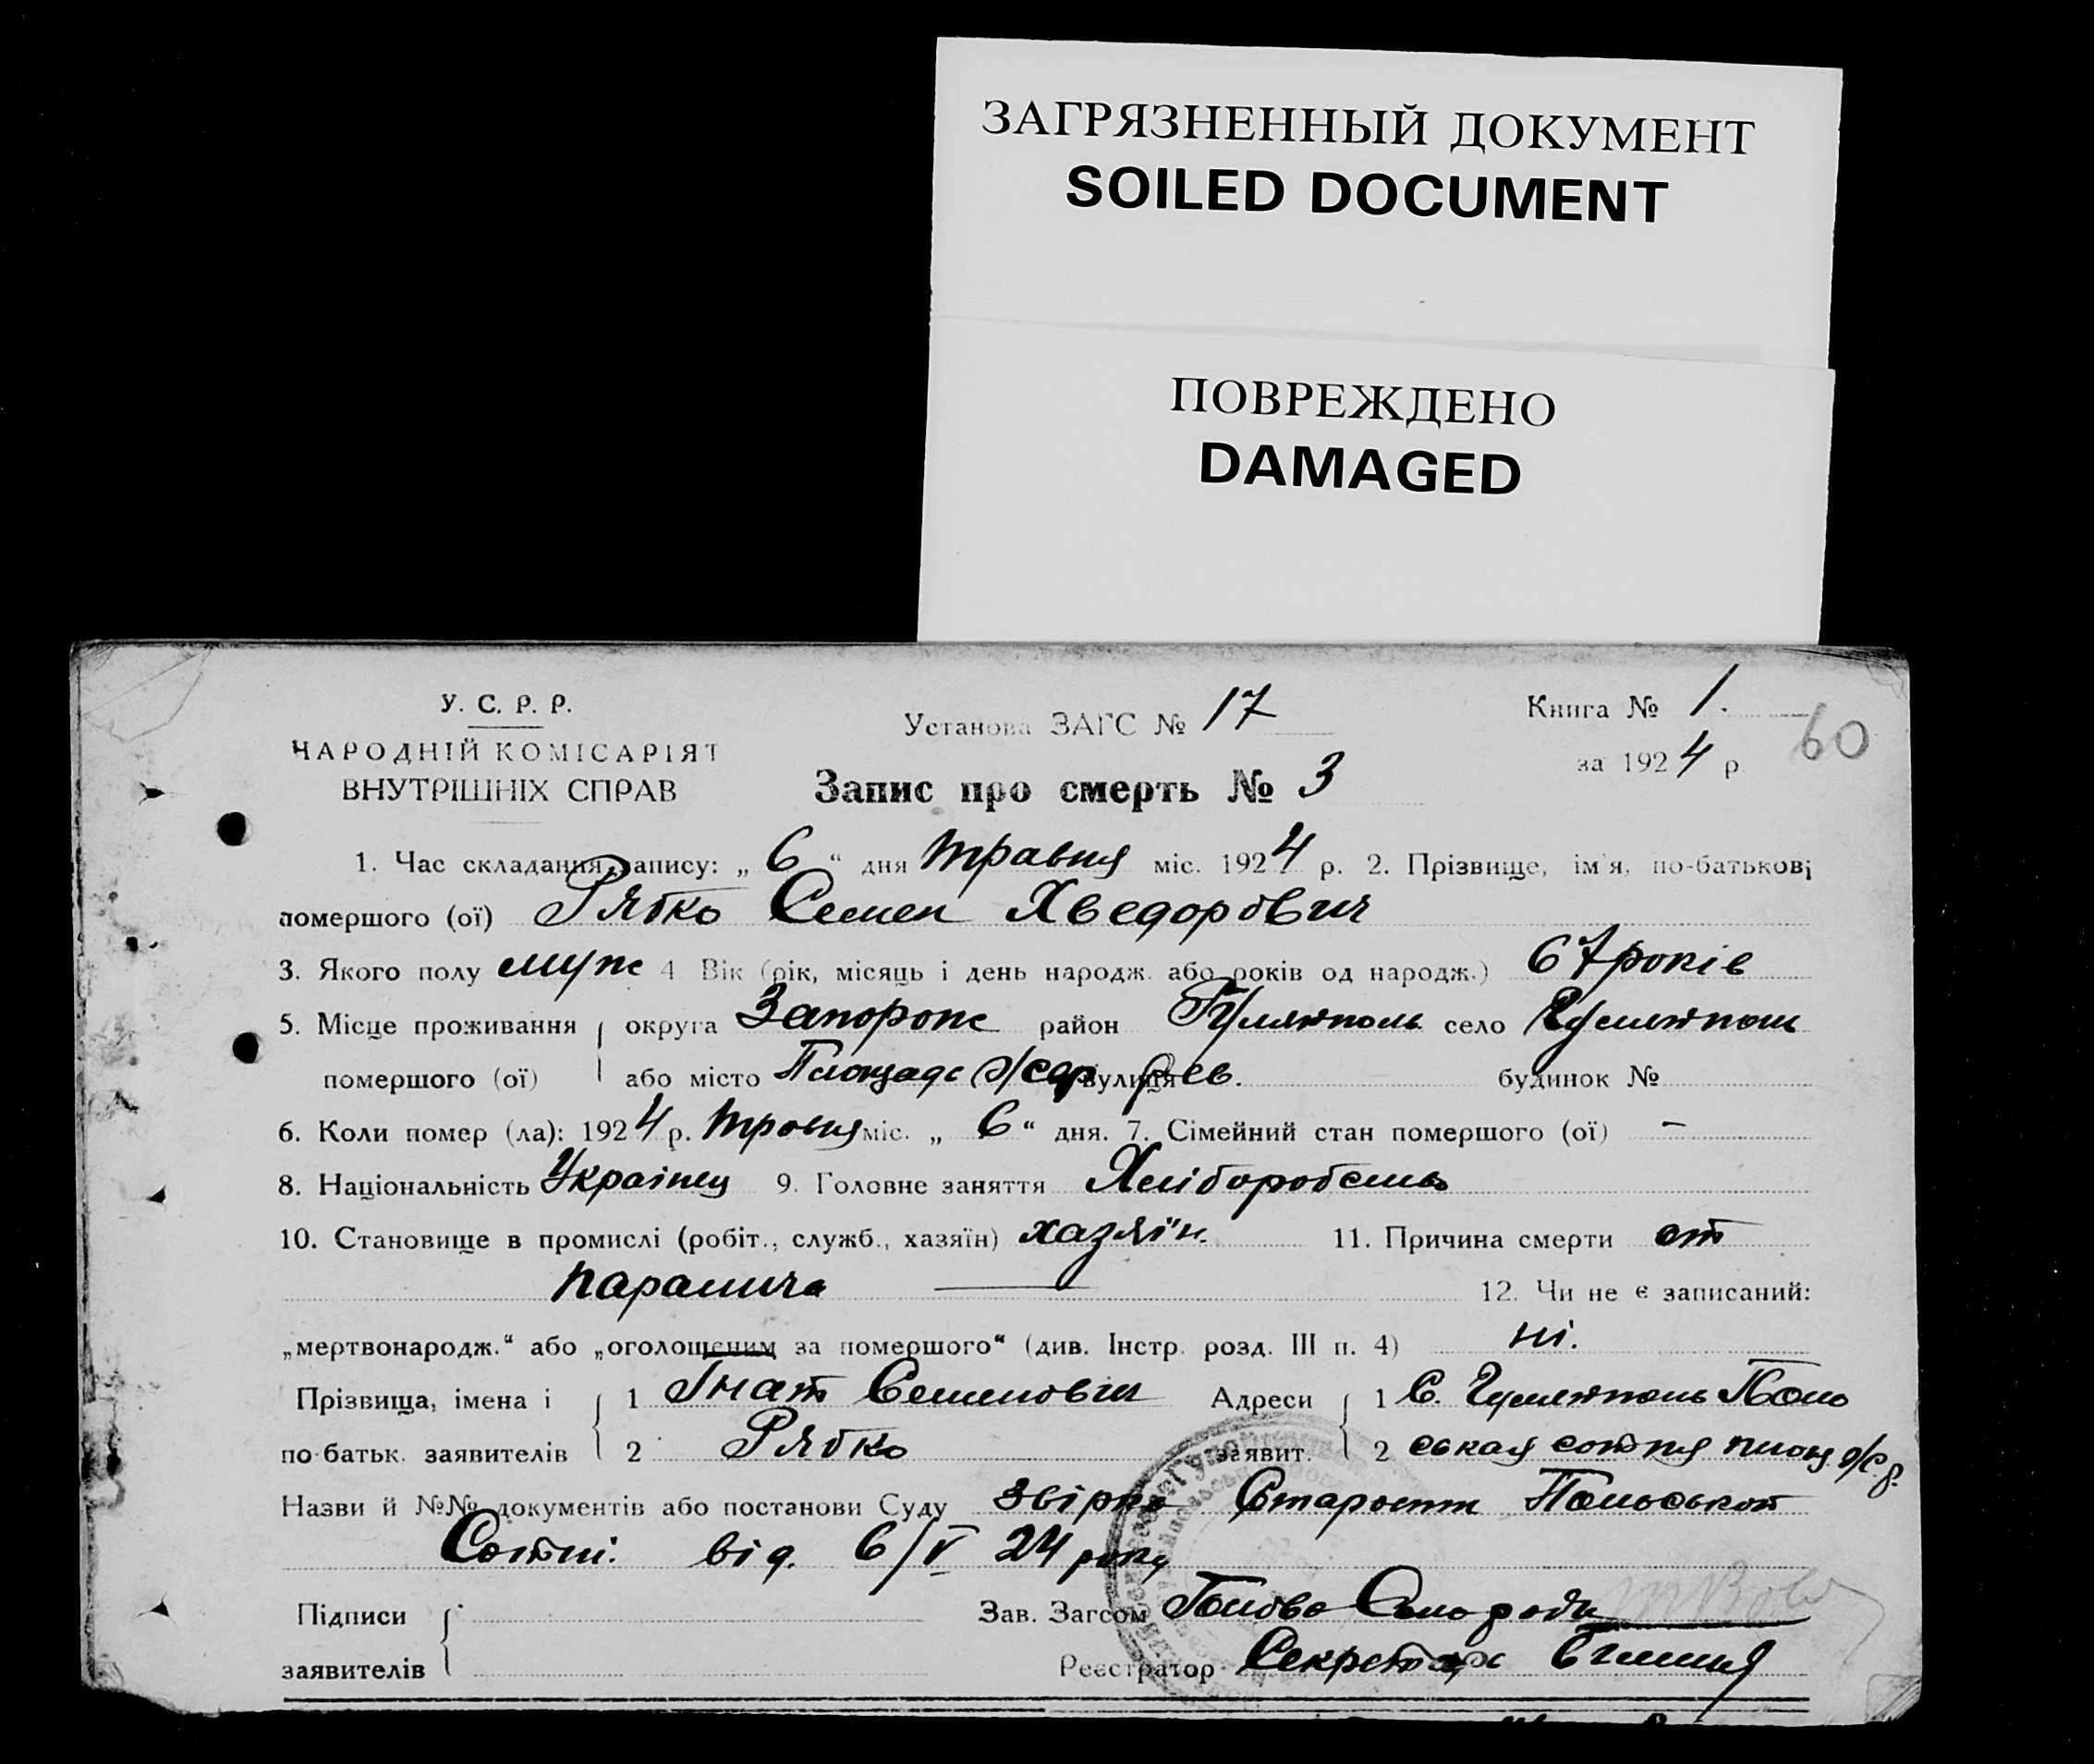 ЗАГРЯЗНЕННЫЙ ДОКУМЕНТ
SOILED DOCUMENT
ПОВРЕЖДЕНО
DAMAGED
У. С. Р. Р.
НАРОДНІЙ КОМІСАРІЯТ
ВНУТРІШНІХ СПРАВ
Установа ЗАГС № 17
Книга № 1.
за 1924 р
60
Запис про смерть № 3
1. Час складання запису: „ 6 “ дня травня міс. 1924 р. 2. Прізвище, ім'я, по-батькові
помершого (ої) Рябко Семен Хведорович
3. Якого полу муж 4 Вік (рік, місяць і день народж. або років од народж.) 67 років
5. Місце проживання округа Запорож район Гуляйполь село Гуляйполь
помершого (ої) або місто Площадь вулиця будинок №
6. Коли помер (ла): 1924 р. травня міс. „ 6 “ дня. 7. Сімейний стан помершого (ої) –
8. Національність Украінец 9. Головне заняття Хлібороб
10. Становище в промислі (робіт., служб., хазяїн) хазяїн. 11. Причина смерти от
паралича
12. Чи не є записаний:
„мертвонародж.“ або „оголошеним за помершого“ (див. Інстр. розд. III п. 4) ні.
Прізвища, імена і 1 Гнат Семенович Адреси 1 С. Гуляйполь Поло
по-батьк. заявителів 2 Рябко заявит. 2 ськая сотня площ.
Назви й №№ документів або постанови Суду звірка Старости Польськой
Сотні. від. 6/V 24 року
Підписи Зав. Загсом Голова
заявителів Реєстратор Секретарь